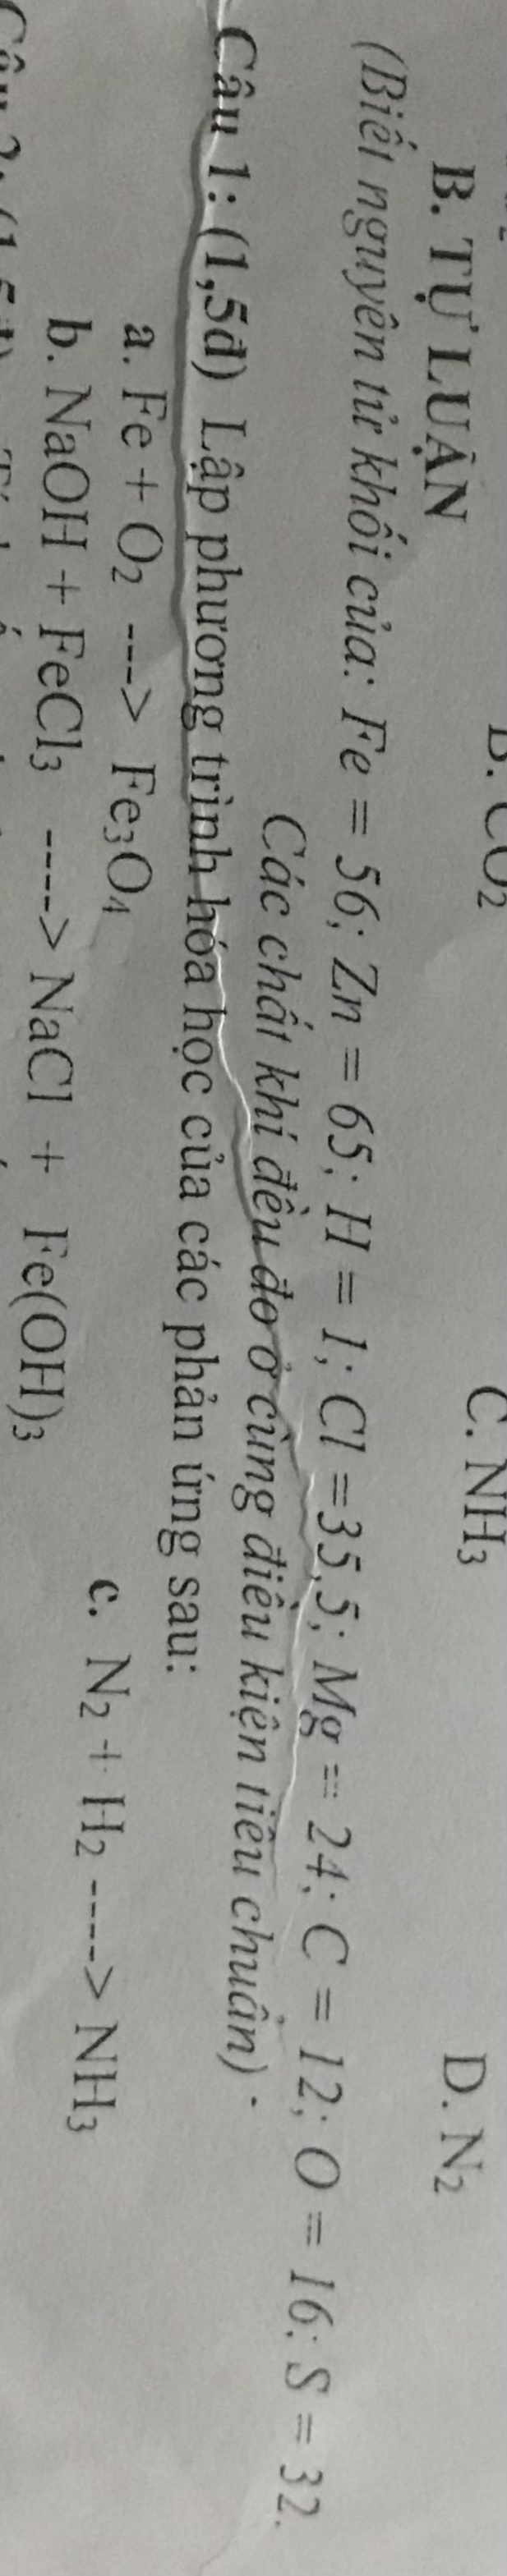 B. CO₂ C. NH₃ D. N₂
B. TỰ LUẬN
(Biết nguyên tử khối của: Fe = 56; Zn = 65; H = 1; Cl =35,5; Mg = 24; C = 12; O = 16; S = 32.
Các chất khí đều đo ở cùng điều kiện tiêu chuẩn) .
Câu 1: (1,5đ) Lập phương trình hóa học của các phản ứng sau:
a. Fe + O₂ ---> Fe₃O₄ c. N₂ + H₂ ----> NH₃
b. NaOH + FeCl₃ ----> NaCl + Fe(OH)₃